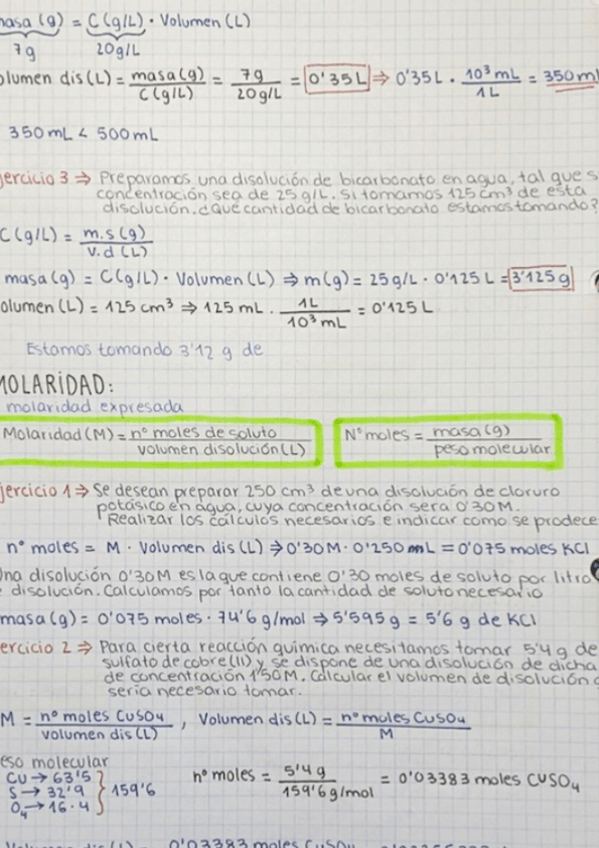 masa (g) = C(g/L) · Volumen (L)
7g 20g/L
olumen dis (L) = masa(g) / C(g/L) = 7g / 20g/L = 0'35L ⇒ 0'35L · 10³mL / 1L = 350ml
350mL < 500mL
jercicio 3 ⇒ Preparamos una disolución de bicarbonato en agua, tal que s
concentración sea de 25g/L. Si tomamos 125 cm³ de esta
disolución. ¿Qué cantidad de bicarbonato estamos tomando?
C(g/L) = m.s(g) / v.d(L)
masa (g) = C(g/L) · Volumen (L) ⇒ m(g) = 25g/L · 0'125L = 3'125g
olumen (L) = 125 cm³ ⇒ 125 mL · 1L / 10³mL = 0'125L
Estamos tomando 3'12 g de
MOLARIDAD:
molaridad expresada
Molaridad (M) = nº moles de soluto / volumen disolución(L)
Nº moles = masa(g) / peso molecular
jercicio 1 ⇒ Se desean preparar 250 cm³ de una disolución de cloruro
potásico en agua, cuya concentración será 0'30M.
Realizar los cálculos necesarios e indicar como se prodece
nº moles = M · Volumen dis (L) ⇒ 0'30M · 0'250 mL = 0'075 moles KCl
Una disolución 0'30M es la que contiene 0'30 moles de soluto por litro
disolución. Calculamos por tanto la cantidad de soluto necesario
masa (g) = 0'075 moles · 74'6 g/mol ⇒ 5'595g = 5'6 g de KCl
ercicio 2 ⇒ Para cierta reacción química necesitamos tomar 5'4 g de
sulfato de cobre (II) y se dispone de una disolución de dicha
de concentración 1'50M. Calcular el volumen de disolución q
sería necesario tomar.
M = nº moles CuSO₄ / volumen dis(L) , Volumen dis(L) = nº moles CuSO₄ / M
eso molecular
Cu → 63'5
S → 32'9
O₄ → 16·4
159'6
nº moles = 5'4 g / 159'6 g/mol = 0'03383 moles CuSO₄
0'03383 moles CuSO₄